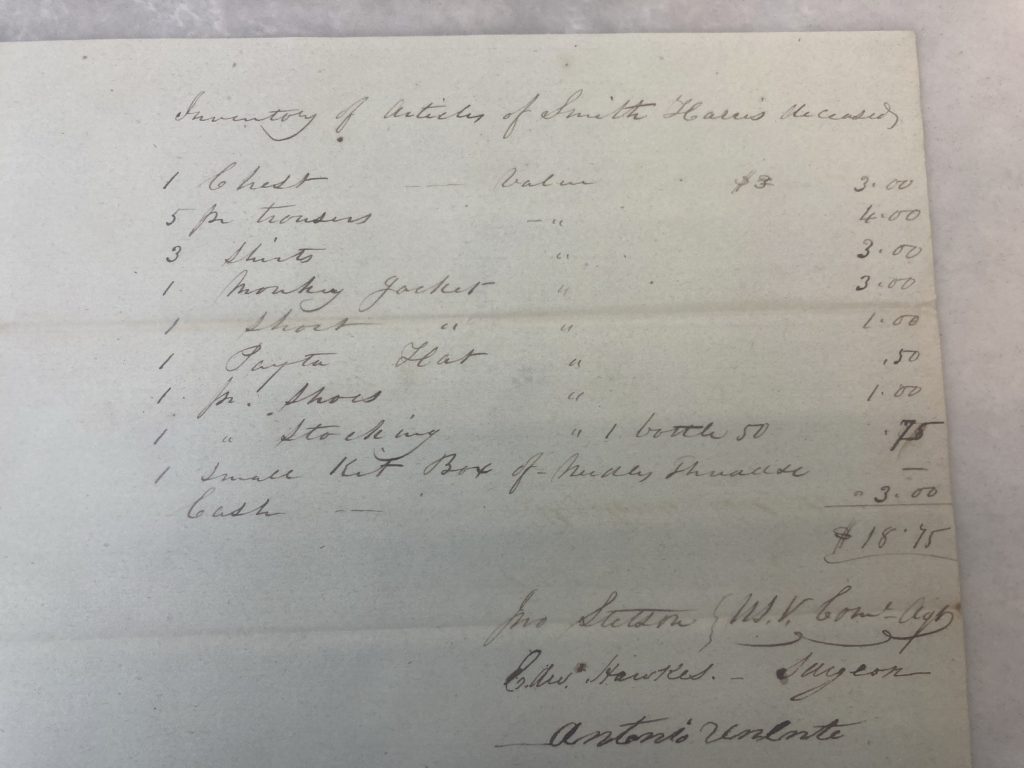 Inventory of Articles of Smith Harris deceased
1 Chest — Value $3 3.00
5 pr trousers — " 4.00
3 Shirts " 3.00
1 Monkey Jacket " 3.00
1 Short " " 1.00
1 Payta Hat " .50
1 pr. Shoes " 1.00
1 " Stocking " 1 bottle 50 .75
1 Small Kit Box of Needles Thread &c —
Cash — " 3.00
$18.75
Jno Stetson } U.S.V. Com¹ Agt
Edw. Hawkes. – Surgeon
Antonio